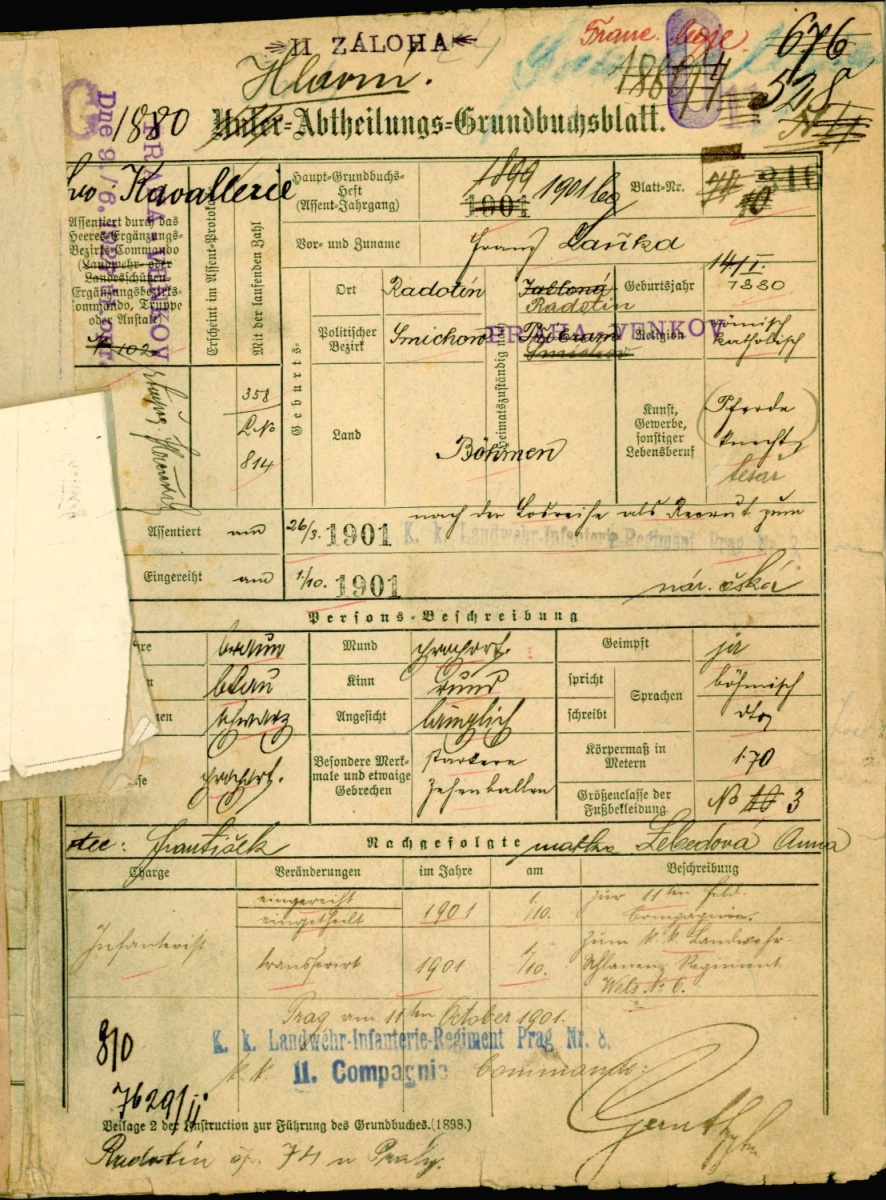 II ZÁLOHA
Franc. boje.
676
Hlavní.
528
1880 Unter-Abtheilungs-Grundbuchsblatt.
PRAHA - VENKOV
Dne 9./6.
Kavallerie
Haupt-Grundbuchs-
Heft
(Assent-Jahrgang)
1899
1901
1901
Blatt-Nr.
316
10
Assentiert durch das
Heeres-Ergänzungs-
Bezirks-Commando
(Landwehr- oder
Landesschützen-
Ergänzungsbezirks-
commando, Truppe
oder Anstalt)
Erscheint im Assent-Protokoll
Mit der laufenden Zahl
358
L.No
814
Vor- und Zuname
Franz Laňka
Geburts-
Ort
Radotín
Heimatszuständig
Jabloná
Radotín
Geburtsjahr
14/I.
1880
Politischer
Bezirk
Smichow
Příbram
Smichow
PRAHA - VENKOV
Religion
römisch
katholisch
Land
Böhmen
Kunst,
Gewerbe,
sonstiger
Lebensberuf
Pferde
knecht
tesař
Assentiert am
26/3. 1901
nach der Losreihe als Recrut zum
K. k. Landwehr-Infanterie-Regiment Prag Nr. 8.
Eingereiht am
1/10. 1901
nár. česká
Persons-Beschreibung
braun
Mund
proport.
Geimpft
ja
blau
Kinn
rund
spricht
Sprachen
böhmisch
schwarz
Angesicht
länglich
schreibt
dto
proport.
Besondere Merk-
male und etwaige
Gebrechen
starkere
Zehenballen
Körpermaß in
Metern
1·70
Größenclasse der
Fußbekleidung
No 10 3
František
Nachgefolgte
matka Lebedová Anna
Charge
Veränderungen
im Jahre
am
Beschreibung
Infanterist
eingereiht
eingetheilt
1901
1/10.
zur 11ten Feld
Compagnie.
transferirt
1901
1/10.
zum k. k. Landwehr-
Uhlanen Regiment
Wels No 6.
Prag am 11ten October 1901.
K. k. Landwehr-Infanterie-Regiment Prag Nr. 8.
k. k. 11. Compagnie Commando:
810
7629/II
Beilage 2 der Instruction zur Führung des Grundbuches.(1898.)
Radotín čp. 74 u Prahy.